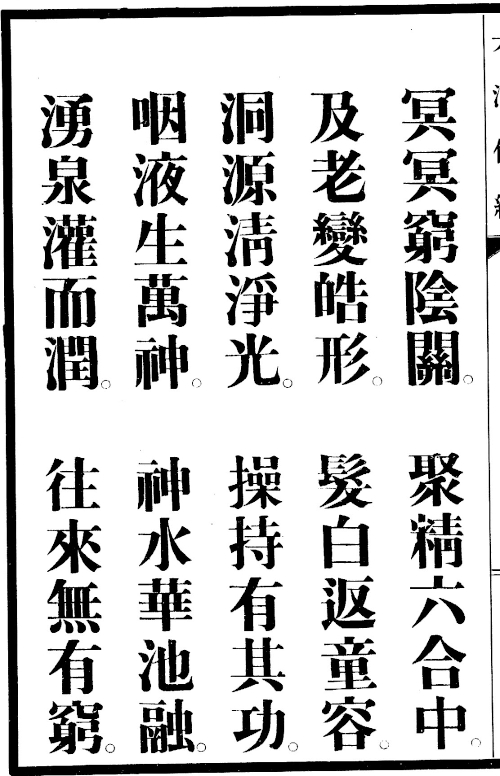 冥冥窮陰關。聚精六合中。
及老變皓形。髮白返童容。
洞源清淨光。操持有其功。
咽液生萬神。神水華池融。
湧泉灌而潤。往來無有窮。